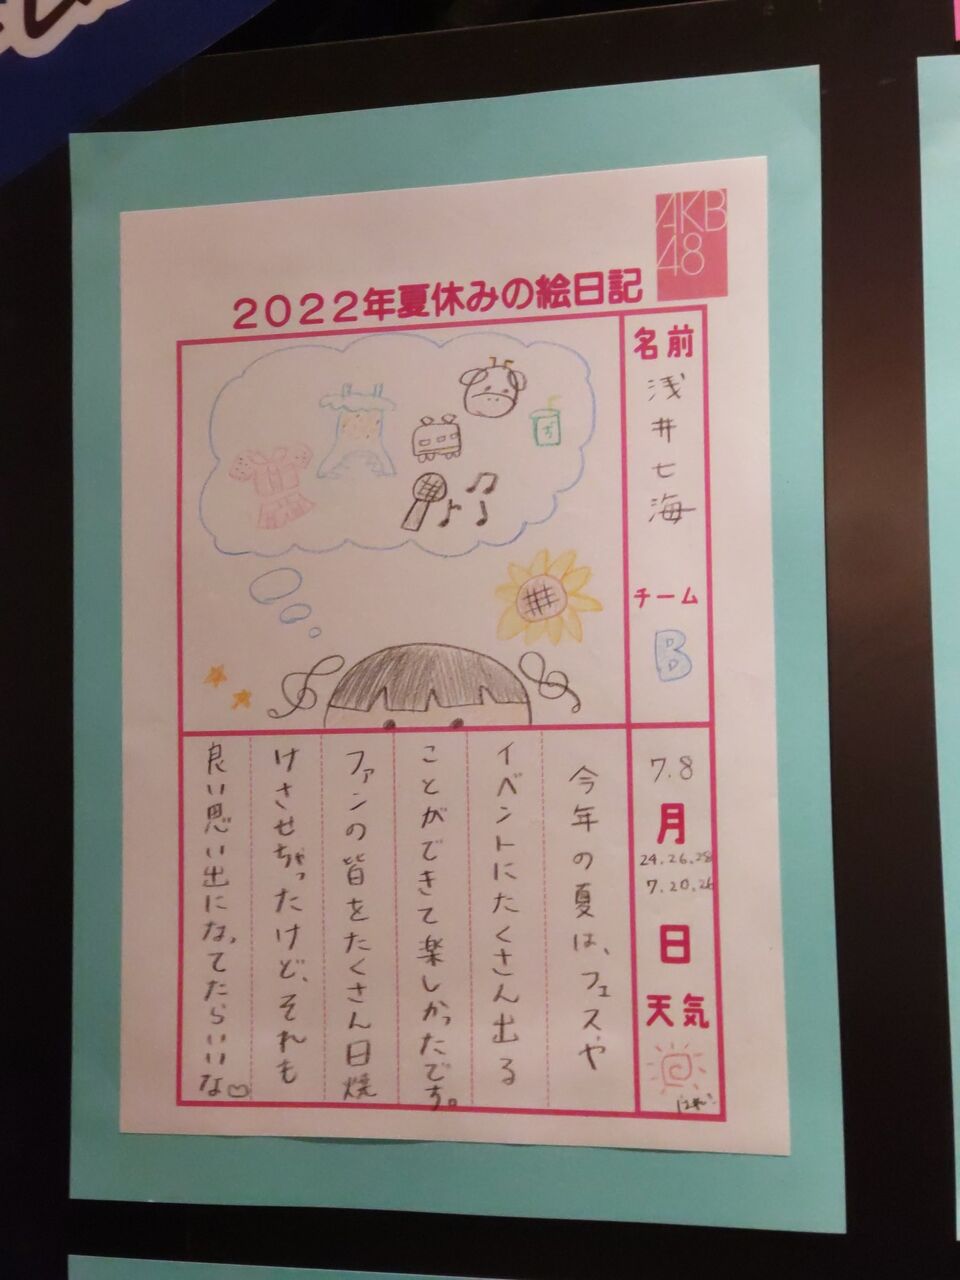 AKB
48
2022年夏休みの絵日記
名前
浅井七海
チーム
B
7.8
月
24.26.28
7.20.26
日
天気
はれ
今年の夏は、フェスや
イベントにたくさん出る
ことができて楽しかったです。
ファンの皆をたくさん日焼
けさせちゃったけど、それも
良い思い出になってたらいいな♡